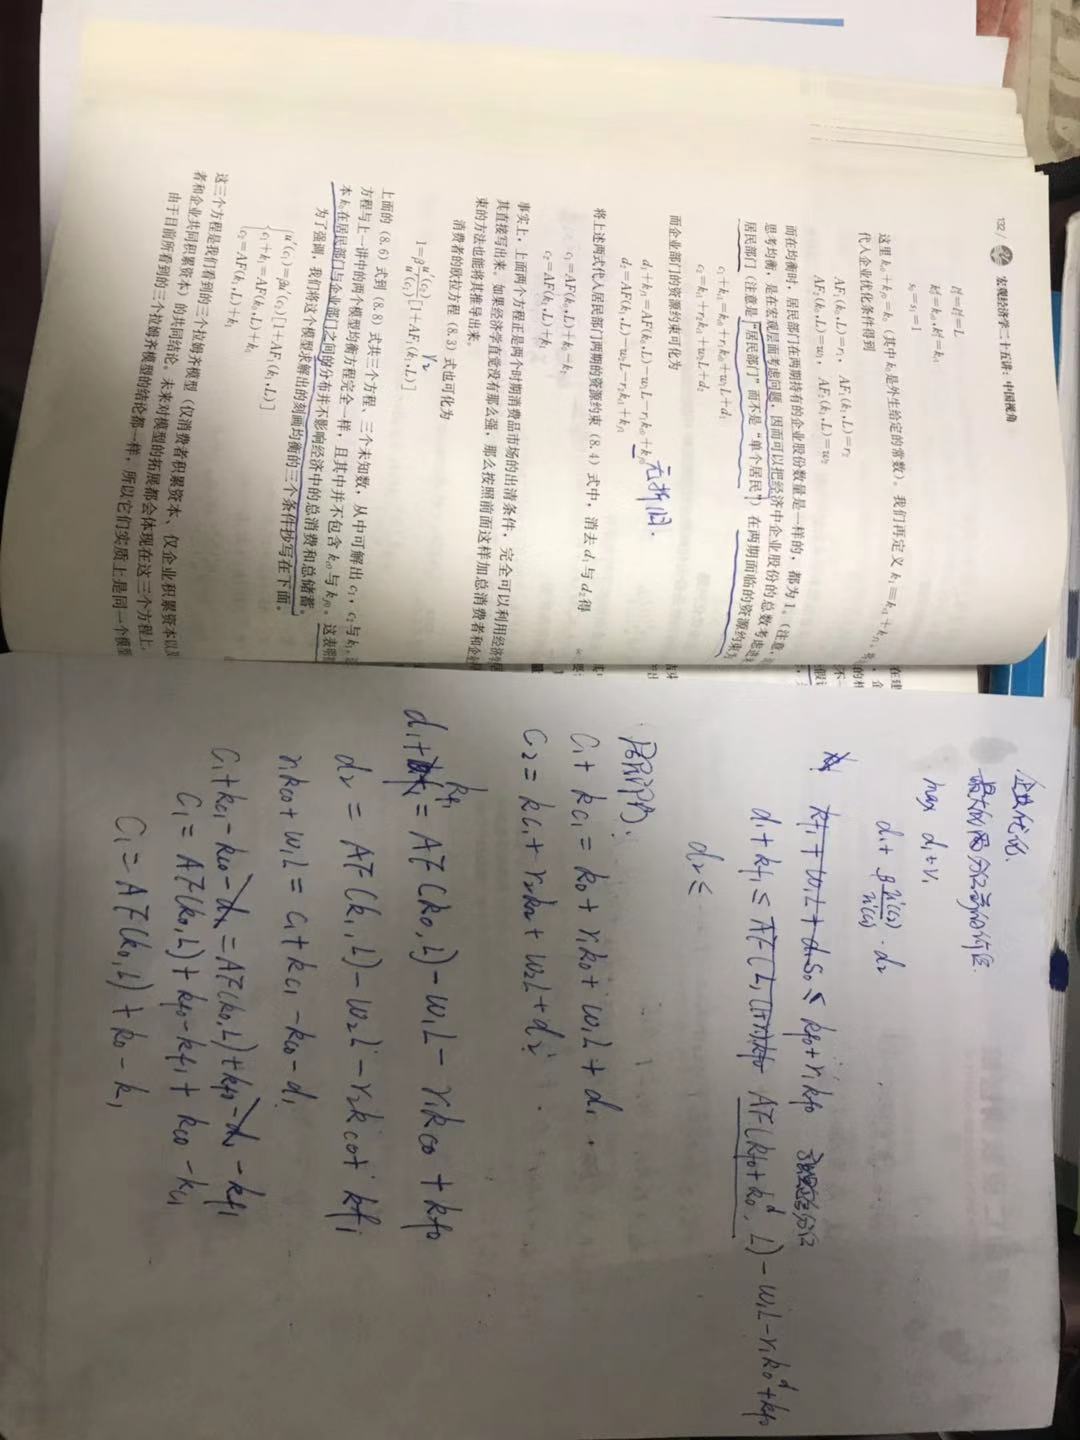 132 / 宏观经济学二十五讲：中国视角
l₁ᵈ=l₂ᵈ=L
k₁ᵈ=k꜀₀, k₂ᵈ=k꜀₁
s₀=s₁=1
这里 k꜀₀+k_f₀=k₀（其中 k₀是外生给定的常数）。我们再定义 k₁=k꜀₁+k_f₁，
代入企业优化条件得到
AF₁(k₀,L)=r₁, AF₁(k₁,L)=r₂
AF₂(k₀,L)=w₁, AF₂(k₁,L)=w₂
而在均衡时，居民部门在两期持有的企业股份数量是一样的，都为1。（注意，
思考均衡，是在宏观层面考虑问题，因而可以把经济中企业股份的总数考虑进
居民部门（注意是“居民部门”而不是“单个居民”）在两期面临的资源约束为
c₁+k꜀₁=k꜀₀+r₁k꜀₀+w₁L+d₁
c₂=k꜀₁+r₂k꜀₁+w₂L+d₂
而企业部门的资源约束可化为
d₁+k_f₁=AF(k₀,L)-w₁L-r₁k꜀₀+k_f₀
无折旧.
d₂=AF(k₁,L)-w₂L-r₂k꜀₁+k_f₁
将上述两式代入居民部门两期的资源约束（8.4）式中，消去 d₁与 d₂得
c₁=AF(k₀,L)+k₀-k₁
c₂=AF(k₁,L)+k₁
事实上，上面两个方程正是两个时期消费品市场的出清条件，完全可以利用经济
其直接写出来。如果经济学直觉没有那么强，那么按照前面这样加总消费者和企
束的方法也能将其推导出来。
消费者的欧拉方程（8.3）式也可化为
1=β u′(c₂)/u′(c₁) [1+AF₁(k₁,L)]
r₂
上面的（8.6）式到（8.8）式共三个方程、三个未知数，从中可解出 c₁、c₂与k₁。
方程与上一讲中的两个模型均衡方程完全一样，且其中并不包含 k꜀₀与 k_f₀。这表明
本 k₀在居民部门与企业部门之间的分布并不影响经济中的总消费和总储蓄。
为了强调，我们将这个模型求解出的刻画均衡的三个条件抄写在下面。
u′(c₁)=βu′(c₂)[1+AF₁(k₁,L)]
c₁+k₁=AF(k₀,L)+k₀
c₂=AF(k₁,L)+k₁
这三个方程是我们看到的三个拉姆齐模型（仅消费者积累资本、仅企业积累资本以及
者和企业共同积累资本）的共同结论。未来对模型的拓展都会体现在这三个方程上。
由于目前所看到的三个拉姆齐模型的结论都一样，所以它们实质上是同一个模型
企业优化.
最大的两分红
max d₁+v₁
d₁+β u′(c₂)/u′(c₁)·d₂
kf₁+w₁L+d₁s₀≤kf₀+r₁kf₀
d₁+kf₁≤ AF(kf₀+k₀ᵈ, L)-w₁L-r₁k₀ᵈ+kf₀
d₂≤
居民部门.
C₁+kc₁=k₀+r₁k₀+w₁L+d₁
C₂=kc₁+r₂k₀+w₂L+d₂
d₁+kf₁=AF(k₀,L)-w₁L-r₁kc₀+kf₀
d₂=AF(k₁,L)-w₂L-r₂kc₀+kf₁
r₁kc₀+w₁L=C₁+kc₁-kc₀-d₁
C₁+kc₁-kc₀-d₁=AF(k₀,L)+kf₀-d₁-kf₁
C₁=AF(k₀,L)+kf₀-kf₁+kc₀-kc₁
C₁=AF(k₀,L)+k₀-k₁